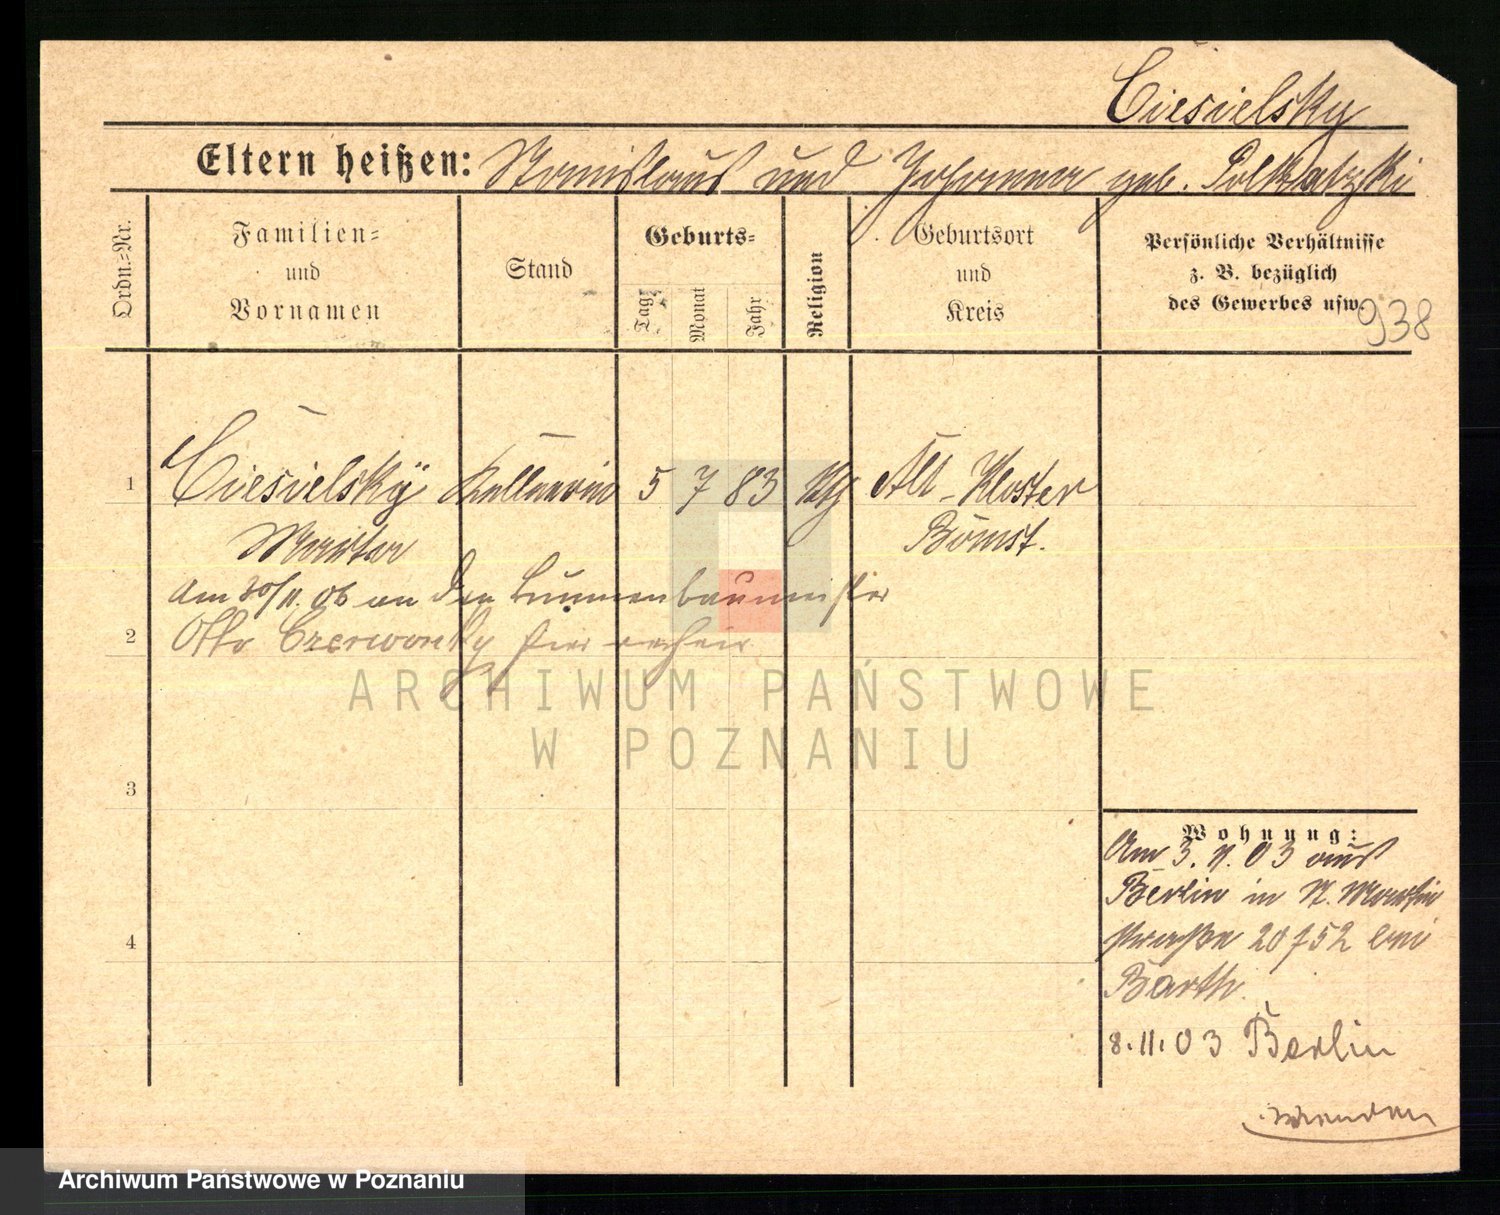 Ciesielsky
Eltern heißen: Stanislaus und Johanna geb. Polkatzki
Ordn.-Nr.
Familien-
und
Vornamen
Stand
Geburts-
Tag
Monat
Jahr
Religion
Geburtsort
und
Kreis
Persönliche Verhältnisse
z. B. bezüglich
des Gewerbes usw.
938
1 Ciesielsky Kellnerin 5 7 83 kth Alt-Kloster
Martha Bomst.
Am 20/11. 06 an den Brunnenbaumeister
2
Otto Czerwonky hier verheir
ARCHIWUM PAŃSTWOWE
W POZNANIU
3
Wohnung:
Am 3. 9. 03 aus
Berlin in St. Martin
4
straße 20/52 bei
Barth.
8.11.03 Berlin
wenden
Archiwum Państwowe w Poznaniu